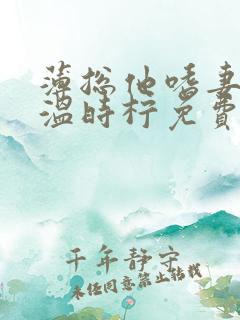 薄总他嗜妻
温时柠免费
千年静守
未经同意禁止转载